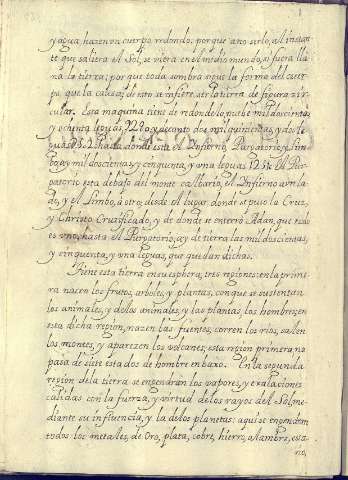 y agua, hazen un cuerpo redondo; porque à no serlo, al instan-
te que saliera el Sol, se viera en el medio mundo, si fuera lla-
na la tierra; por que toda sombra sigue la forma del cuer-
po, que la causa; de esto se infiere, ser la tierra de figura cir-
cular. Esta maquina tiene de redondo
y ochenta leguas, y quinientas, y dos le-
guas hasta donde està el Infierno, Purgatorio, y Lim-
bo, ay mil doscientas, y cinquenta, y una leguas 1251. El Pur-
gatorio està debajo del monte calbario, el Infierno a un la-
do, y el Limbo, à otro, desde el lugar donde se puso la Cruz,
y Christo Cruzificado, y de donde se enterrò Adan, que todo
es uno, hasta el Purgatorio, ay de tierra las mil doscientas,
y cinquenta, y una leguas, que quedan dichas.
Tiene esta tierra en su esphera, tres regiones: en la prime-
ra nacen los frutos, arboles, y plantas, con que se sustentan
los animales, y de los animales, y las plantas, los hombres; en
esta dicha region, nazen las fuentes, corren los rios, salen
los montes, y aparezen los volcanes; esta region primera, no
pasa de siete estados de hombre en baxo. En la segunda
region de la tierra se engendran los vapores, y exalaciones
calidas con la fuerza, y virtud de los rayos del Sol, me-
diante su influencia, y la de los planetas: aqui se engendran
todos los metales, de Oro, plata, cobre, hierro, alambre, esta-
no,